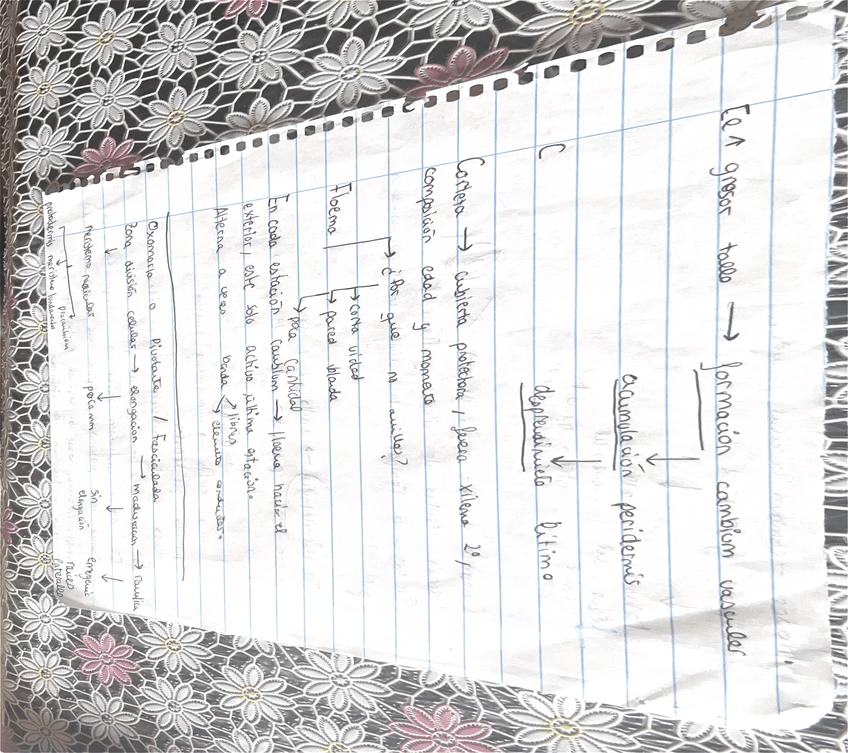 El ↑ grosor tallo → formación cambium vascular
acumulación peridermis
desprendimiento último
C
Corteza → cubierta protectora, fuera xilema 2º,
composición edad y momato
→ ¿Por qué no anillos?
Floema
→ corta vidad
→ pared blada
→ poca cantidad
En cada estación cambium → floema hacia el
exterior, este solo activo última estación.
Alterna a veces banda
→ libres
→ elemento conductor.
Axomorfa o pivotante / Fasciculada
Zona división celular → elongación → maduración → caulífica
meristemo radicular
sin
elongación
raices
laterales
protodermis meristemo fundamental
procambium